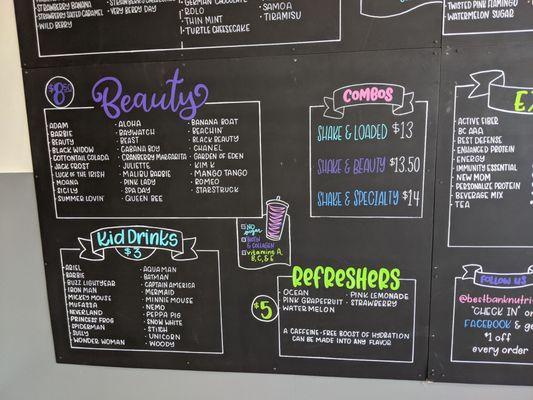 STRAWBERRY BANANA
STRAWBERRY SALTED CARAMEL
WILD BERRY
STRAWBERRY CHEESECAKE
VERY BERRY DAY
GERMAN CHOCOLATE
ROLO
THIN MINT
TURTLE CHEESECAKE
SAMOA
TIRAMISU
TWISTED PINK FLAMINGO
WATERMELON SUGAR
$8.50
Beauty
ADAM
BARBIE
BEAUTY
BLACK WIDOW
COTTONTAIL COLADA
JACK FROST
LUCK OF THE IRISH
MOANA
SICILY
SUMMER LOVIN'
· ALOHA
· BAYWATCH
· BEAST
· CABANA BOY
· CRANBERRY MARGARITA
· JULIETTE
· MALIBU BARBIE
· PINK LADY
· SPA DAY
· QUEEN BEE
· BANANA BOAT
· BEACHIN'
· BLACK BEAUTY
· CHANEL
· GARDEN OF EDEN
· KIM K
· MANGO TANGO
· ROMEO
· STARSTRUCK
COMBOS
SHAKE & LOADED $13
SHAKE & BEAUTY $13.50
SHAKE & SPECIALTY $14
ACTIVE FIBER
BC AAA
BEST DEFENSE
ENHANCED PROTEIN
ENERGY
IMMUNITY ESSENTIAL
NEW MOM
PERSONALIZE PROTEIN
BEVERAGE MIX
TEA
NO sugar
BIOTIN & COLLAGEN
vitamins A
B, C, & E
Kid Drinks
$3
ARIEL
BARBIE
BUZZ LIGHTYEAR
IRON MAN
MICKEY MOUSE
MUFASSA
NEVERLAND
PRINCESS FROG
SPIDERMAN
SULLY
WONDER WOMAN
· AQUA MAN
· BATMAN
· CAPTAIN AMERICA
· MERMAID
· MINNIE MOUSE
· NEMO
· PEPPA PIG
· SNOW WHITE
· STITCH
· UNICORN
· WOODY
REFRESHERS
$5
OCEAN
PINK GRAPEFRUIT
WATERMELON
· PINK LEMONADE
· STRAWBERRY
A CAFFEINE-FREE BOOST OF HYDRATION
CAN BE MADE INTO ANY FLAVOR
FOLLOW US
@bestbanknutri
"CHECK IN" on
FACEBOOK & ge
$1 off
every order